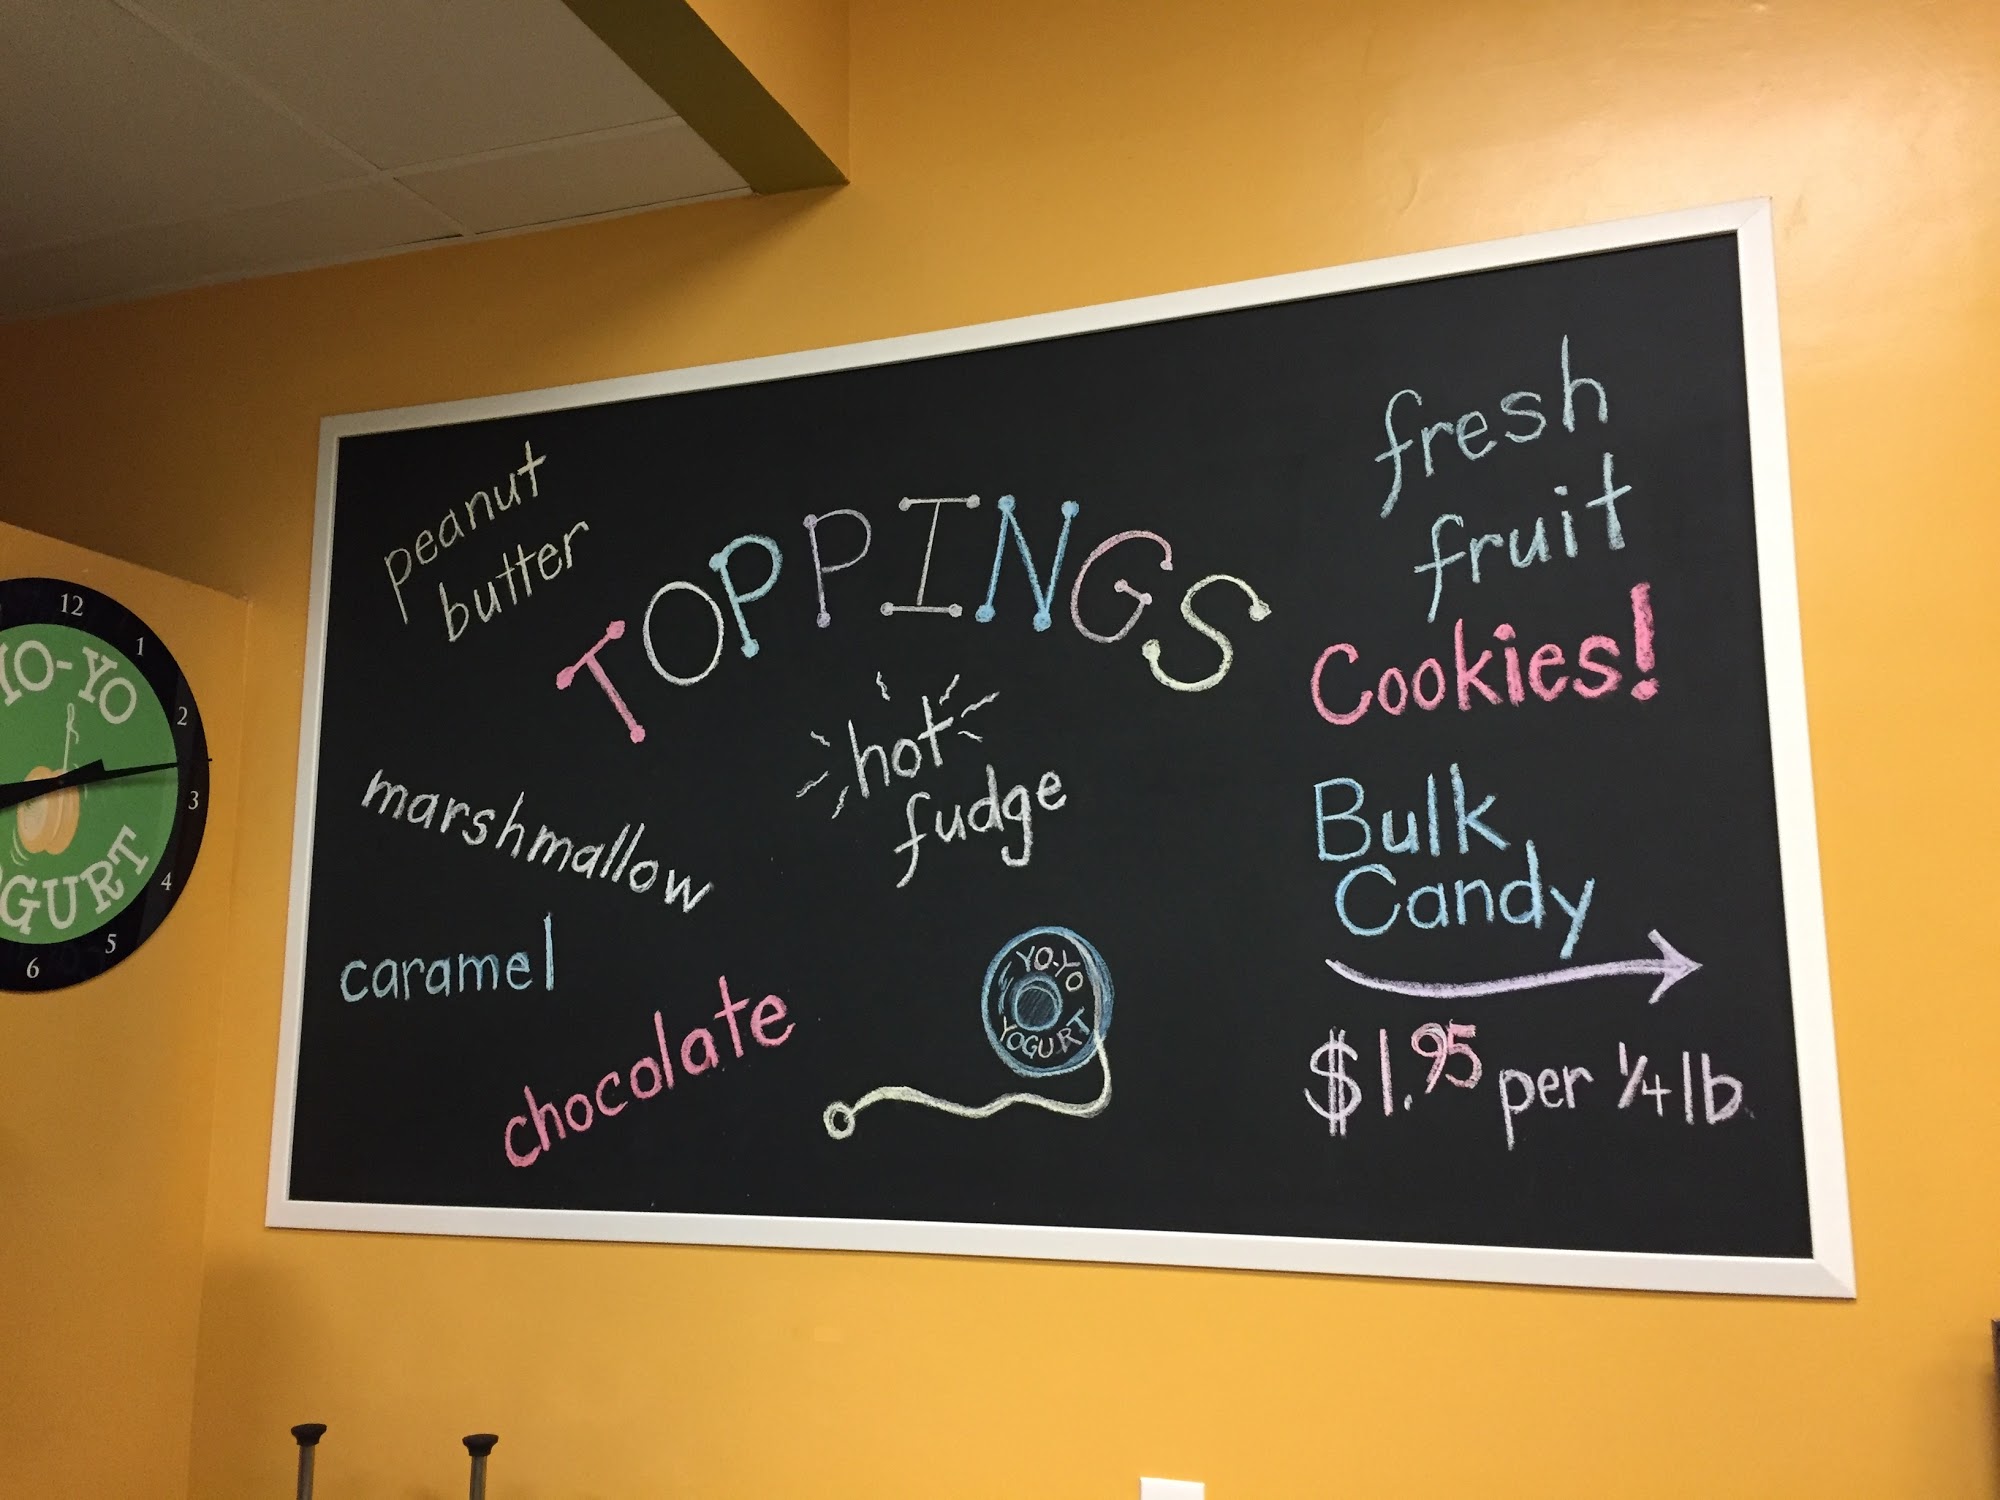 peanut
butter
TOPPINGS
hot
fudge
marshmallow
caramel
chocolate
YO-YO
YOGURT
fresh
fruit
Cookies!
Bulk
Candy
$1.95 per 1/4 lb
12
1
2
3
4
5
6
YO-YO
OGURT